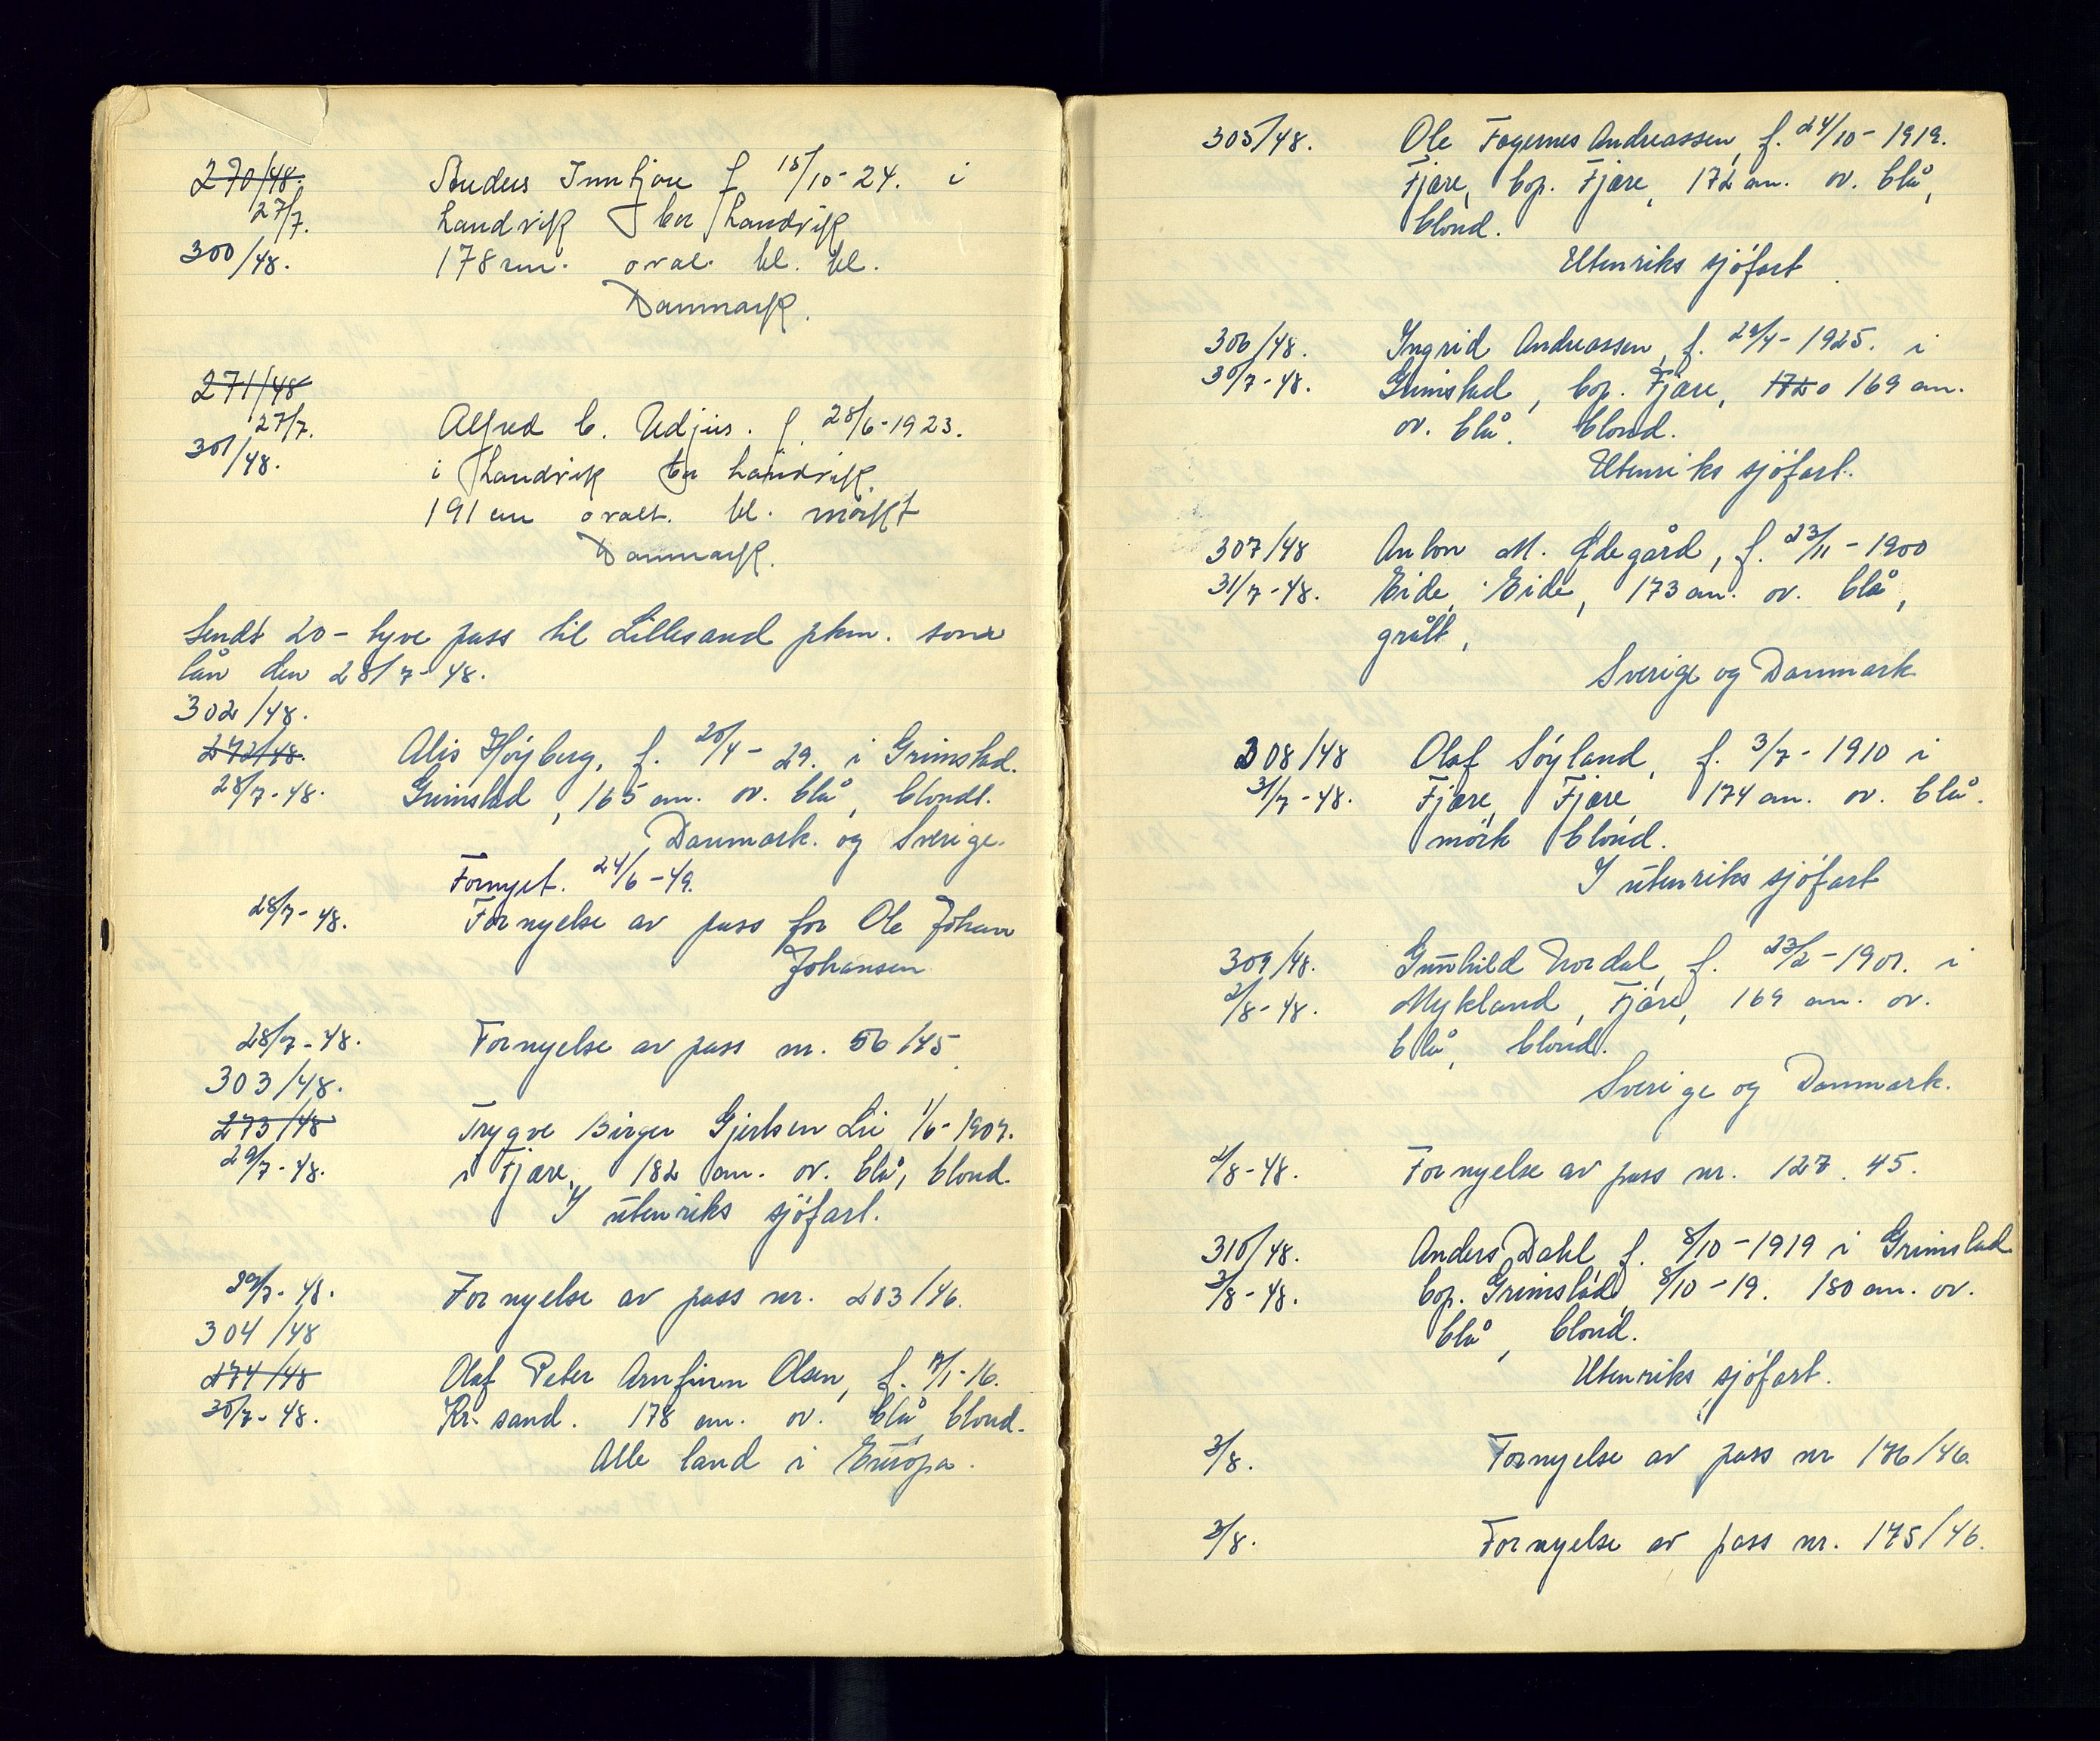 270/48. Anders Inntjore f 15/10-24. i
27/7. Landvik bor Landvik
300/48. 178 cm. oval. bl. bl.
Danmark.
271/48
27/7. Alfred C. Udjus. f. 28/6-1923.
301/48. i Landvik bor Landvik.
191 cm ovalt. bl. mørkt
Danmark.
Sendt 20 - tyve pass til Lillesand pkm. som
lån den 28/7-48.
302/48.
272/48. Alis Højberg, f. 20/4-29. i Grimstad.
28/7-48. Grimstad, 165 cm. ov. blå, blondt.
Danmark. og Sverige.
Fornyet. 24/6-49.
28/7-48. Fornyelse av pass for Ole Johan
Johansen
28/7-48. Fornyelse av pass nr. 56/45.
303/48.
273/48 Trygve Birger Gjertsen Lie 1/6-1907.
29/7-48. i Fjære, 182 cm. ov. blå, blond.
I utenriks sjöfart.
29/7-48. Fornyelse av pass nr. 203/46.
304/48
274/48 Olaf Peter Arnfinn Olsen, f. 17/1-16.
30/7-48. Kr. sand. 178 cm. ov. blå blond.
Alle land i Europa.
305/48. Ole Fagernes Andreassen, f. 24/10-1919.
Fjære, bop. Fjære, 172 cm. ov. blå,
blond.
Utenriks sjöfart
306/48. Ingrid Andreassen, f. 29/4-1925. i
30/7-48. Grimstad, bop. Fjære, 1720 169 cm.
ov. blå. blond.
Utenriks sjöfart.
307/48 Anton M. Ødegård, f. 23/11-1900
31/7-48. Eide, Eide, 173 cm. ov. blå,
grått,
Sverige og Danmark
308/48 Olaf Söyland, f. 3/7-1910 i
31/7-48. Fjære, Fjære 174 cm. ov. blå.
mörk blond.
I utenriks sjöfart
309/48. Gunhild Nordal, f. 23/2-1901. i
2/8-48. Mykland, Fjære, 169 cm. ov.
blå, blond.
Sverige og Danmark.
2/8-48. Fornyelse av pass nr. 127.45.
310/48. Anders Dahl f. 8/10-1919 i Grimstad
3/8-48. bop. Grimstad 8/10-19. 180 cm. ov.
blå, blond.
Utenriks sjöfart.
3/8. Fornyelse av pass nr 176/46.
3/8. Fornyelse av pass nr. 175/46.